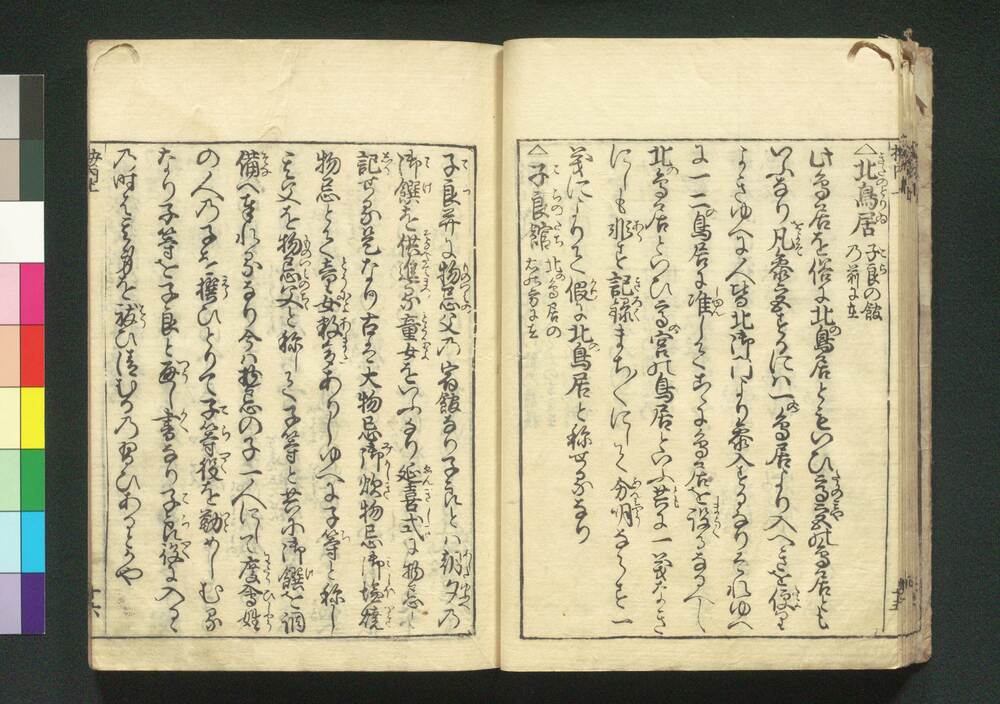 △北鳥居 子良の館
乃前に在
此鳥居を俗に北鳥居ともいひ高宮の鳥居とも
いふなり凡参宮するには一の鳥居より入へきを便り
よきゆへに人皆北御門より参入するなりそれゆへ
に一二の鳥居に准してこゝに鳥居を設るなるへし
北の鳥居といひ高宮の鳥居といふ共に一義なき
にしも非す記録まち〳〵にして分明ならす一
義によりて假に北の鳥居と称せるなり
△子良館 北の鳥居の
子良并に物忌父乃宿館なり子良とハ朝夕の
御饌を供進する童女をいふなり延喜式に物忌と
記せる是なり古は大物忌御炊物忌御塩焼
物忌とて童女数多ありしゆへに子等と称し
其父を物忌父と称して子等と共に御饌を調
備へ奉れるなり今ハ物忌の子一人にして度会姓
の人乃子を撰ひとりて子等役を勤めしむる
なり子等を子良と書なり子良役に入る
乃時は其身を祓ひ清むるの習ひあるとかや
十六